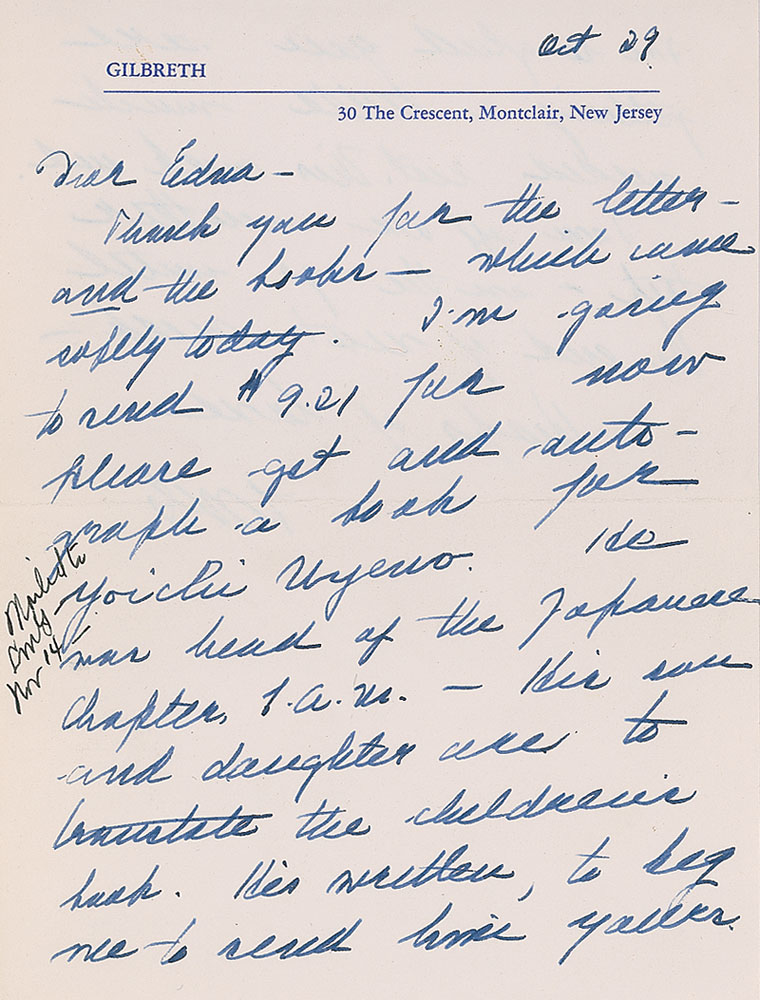 Oct 29
GILBRETH
30 The Crescent, Montclair, New Jersey
Dear Edna -
Thank you for the letter -
and the books - which came
safely today. I'm going
to send $9.21 for now
please get and auto-
graph a book for
Yoichi Uyeno. He
was head of the Japanese
chapter, S.A.M. - His son
and daughter are to
translate the children's
book. He's written, to beg
me to send him yours.
Nov 14